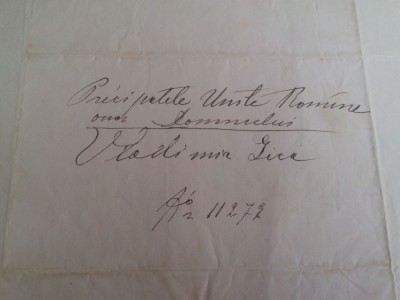 Précipatele Unite Romîne
onor Domnului
Vladimir Gica
No 11272